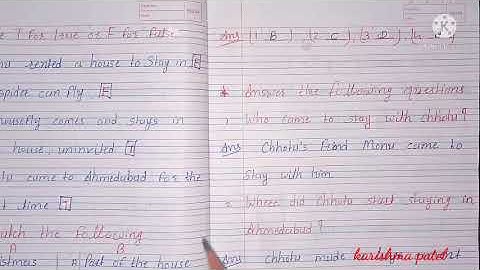 e T for True or F for False
nu rented a house to Stay in [F]
spider can fly [F]
usefly comes and stays in
house, uninvited [T]
tu came to Ahmedabad for the
t time [T]
atch the following
A B
istmas A) Part of the house
Ans (1 B ), (2 C ), (3 D ), (4
* Answer the following questions
1 Who came to stay with chhotu?
Ans Chhotu's frind Monu came to
Stay with him
2 Where did Chhotu start staying in
Ahmedabad?
Ans Chhotu made
karishma patel